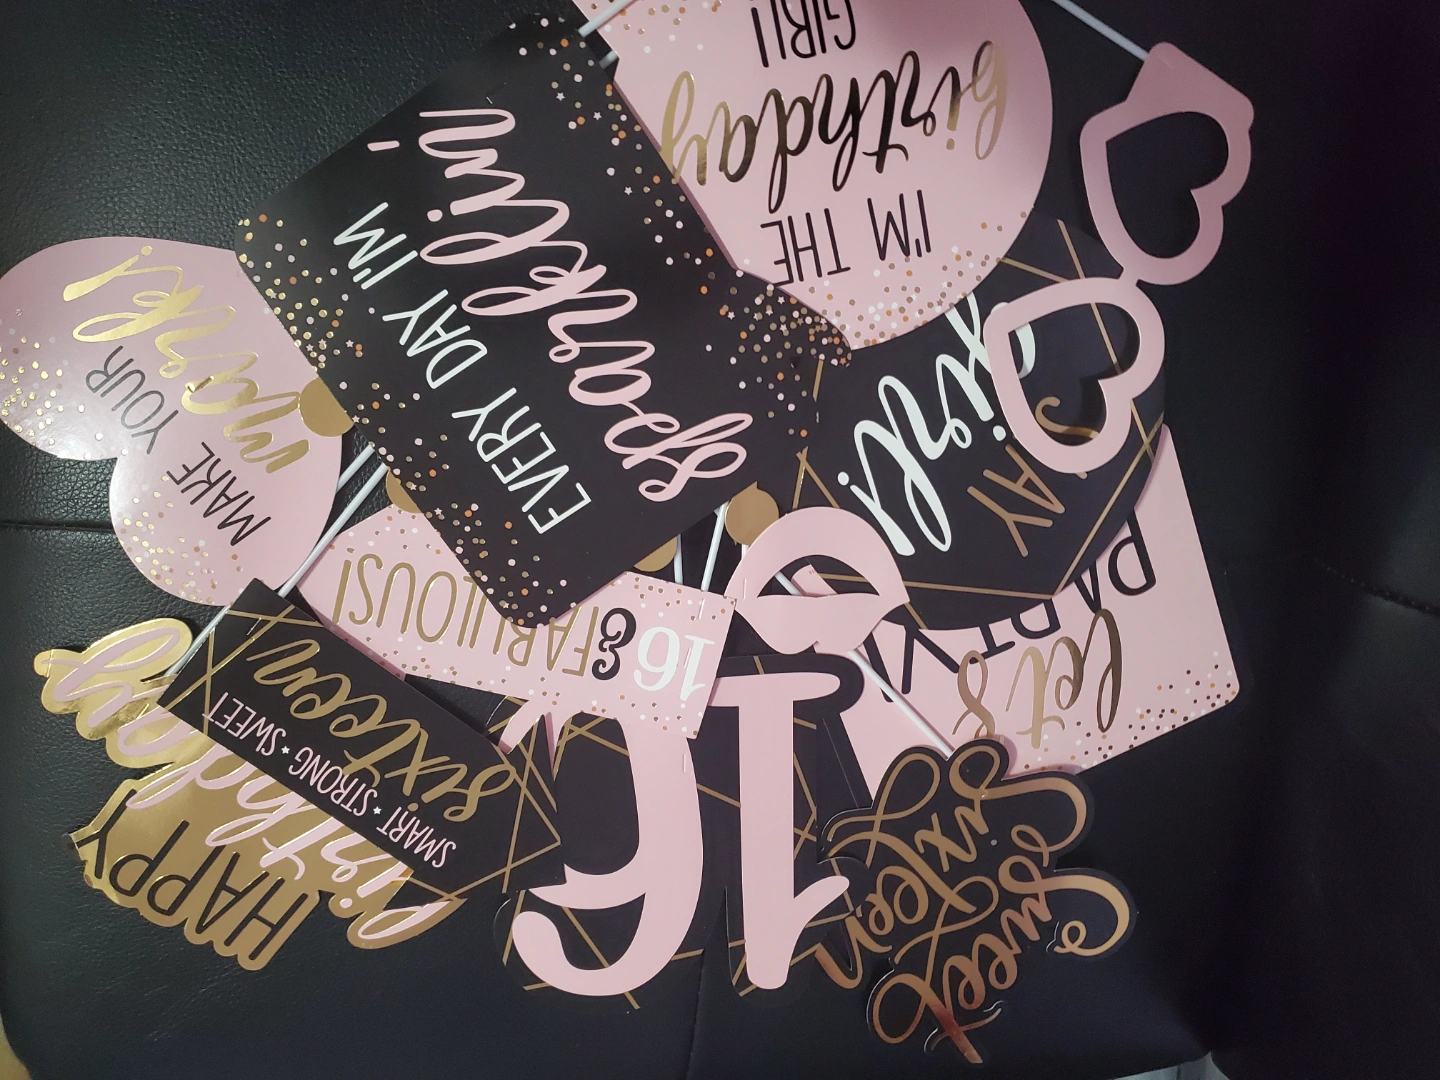 I'M THE
birthday
GIRL!
EVERY DAY I'M
sparklin'
MAKE YOUR
mark!
16 & FABULOUS!
flirti
AY
let's
PARTY
sixteen
SMART ★ STRONG ★ SWEET
HAPPY
birthday
16
sweet
sixteen